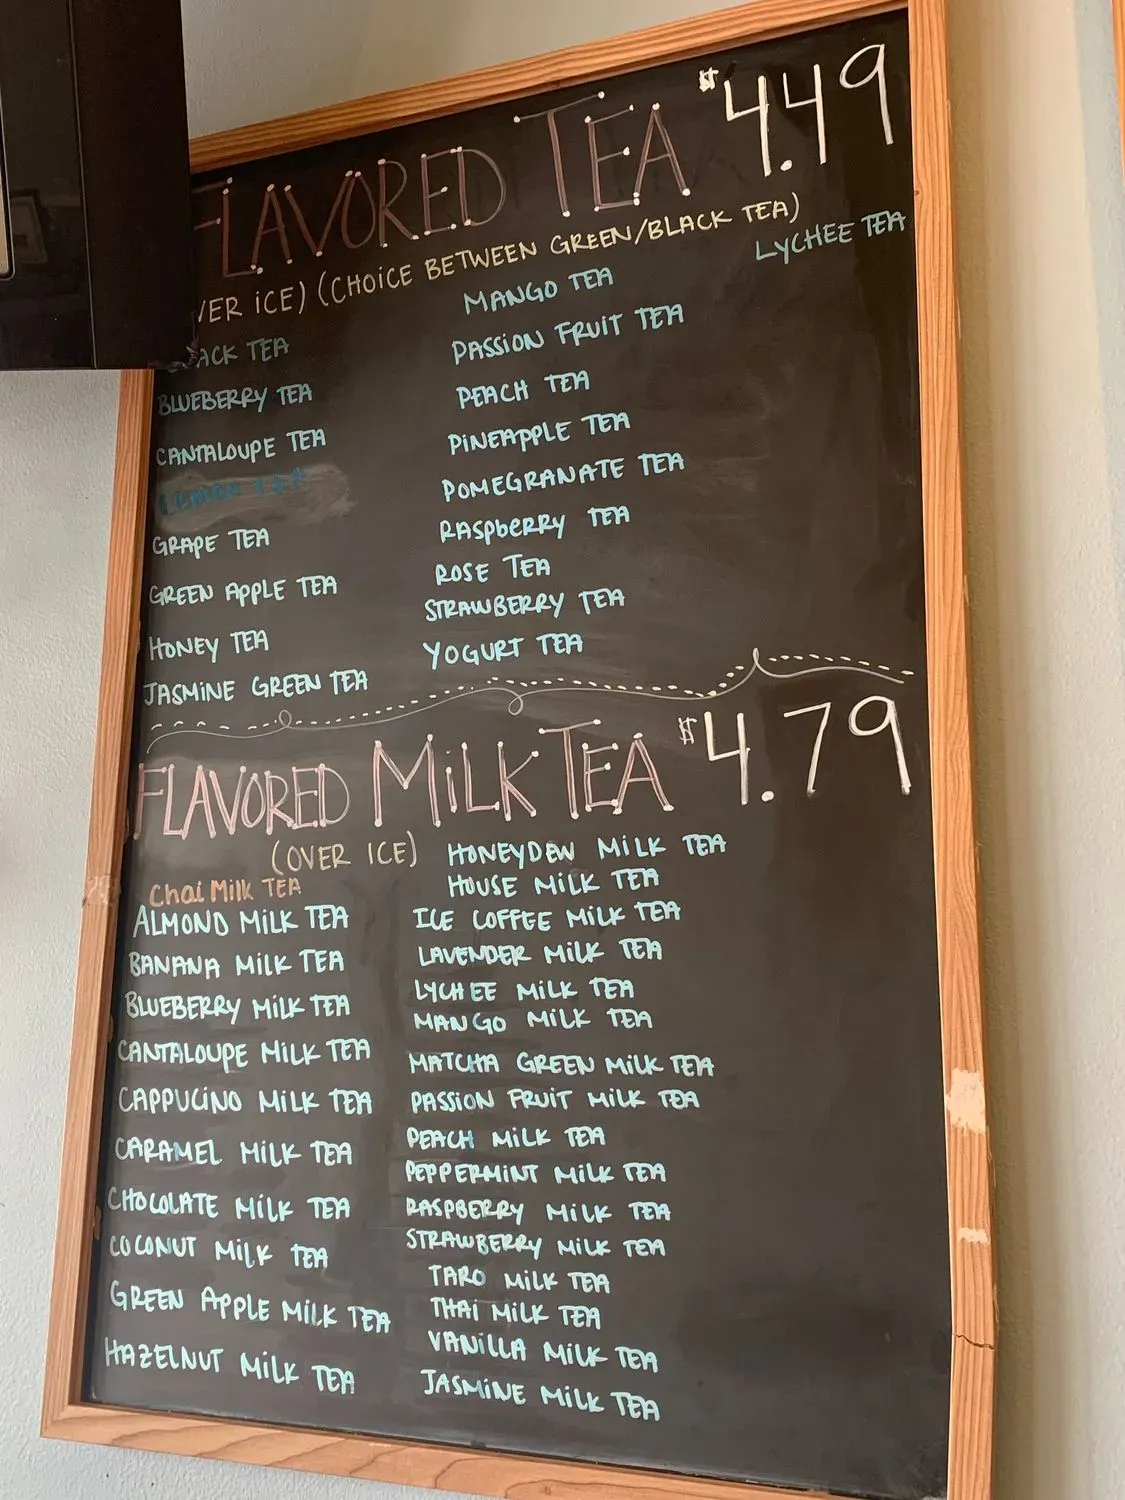 FLAVORED TEA $4.49
OVER ICE) (CHOICE BETWEEN GREEN/BLACK TEA)
BLACK TEA
BLUEBERRY TEA
CANTALOUPE TEA
LEMON TEA
GRAPE TEA
GREEN APPLE TEA
HONEY TEA
JASMINE GREEN TEA
MANGO TEA
PASSION FRUIT TEA
PEACH TEA
PINEAPPLE TEA
POMEGRANATE TEA
RASPBERRY TEA
ROSE TEA
STRAWBERRY TEA
YOGURT TEA
LYCHEE TEA
FLAVORED MILK TEA $4.79
(OVER ICE)
Chai Milk TEA
ALMOND MILK TEA
BANANA MILK TEA
BLUEBERRY MILK TEA
CANTALOUPE MILK TEA
CAPPUCINO MILK TEA
CARAMEL MILK TEA
CHOCOLATE MILK TEA
COCONUT MILK TEA
GREEN APPLE MILK TEA
HAZELNUT MILK TEA
HONEYDEW MILK TEA
HOUSE MILK TEA
ICE COFFEE MILK TEA
LAVENDER MILK TEA
LYCHEE MILK TEA
MANGO MILK TEA
MATCHA GREEN MILK TEA
PASSION FRUIT MILK TEA
PEACH MILK TEA
PEPPERMINT MILK TEA
RASPBERRY MILK TEA
STRAWBERRY MILK TEA
TARO MILK TEA
THAI MILK TEA
VANILLA MILK TEA
JASMINE MILK TEA